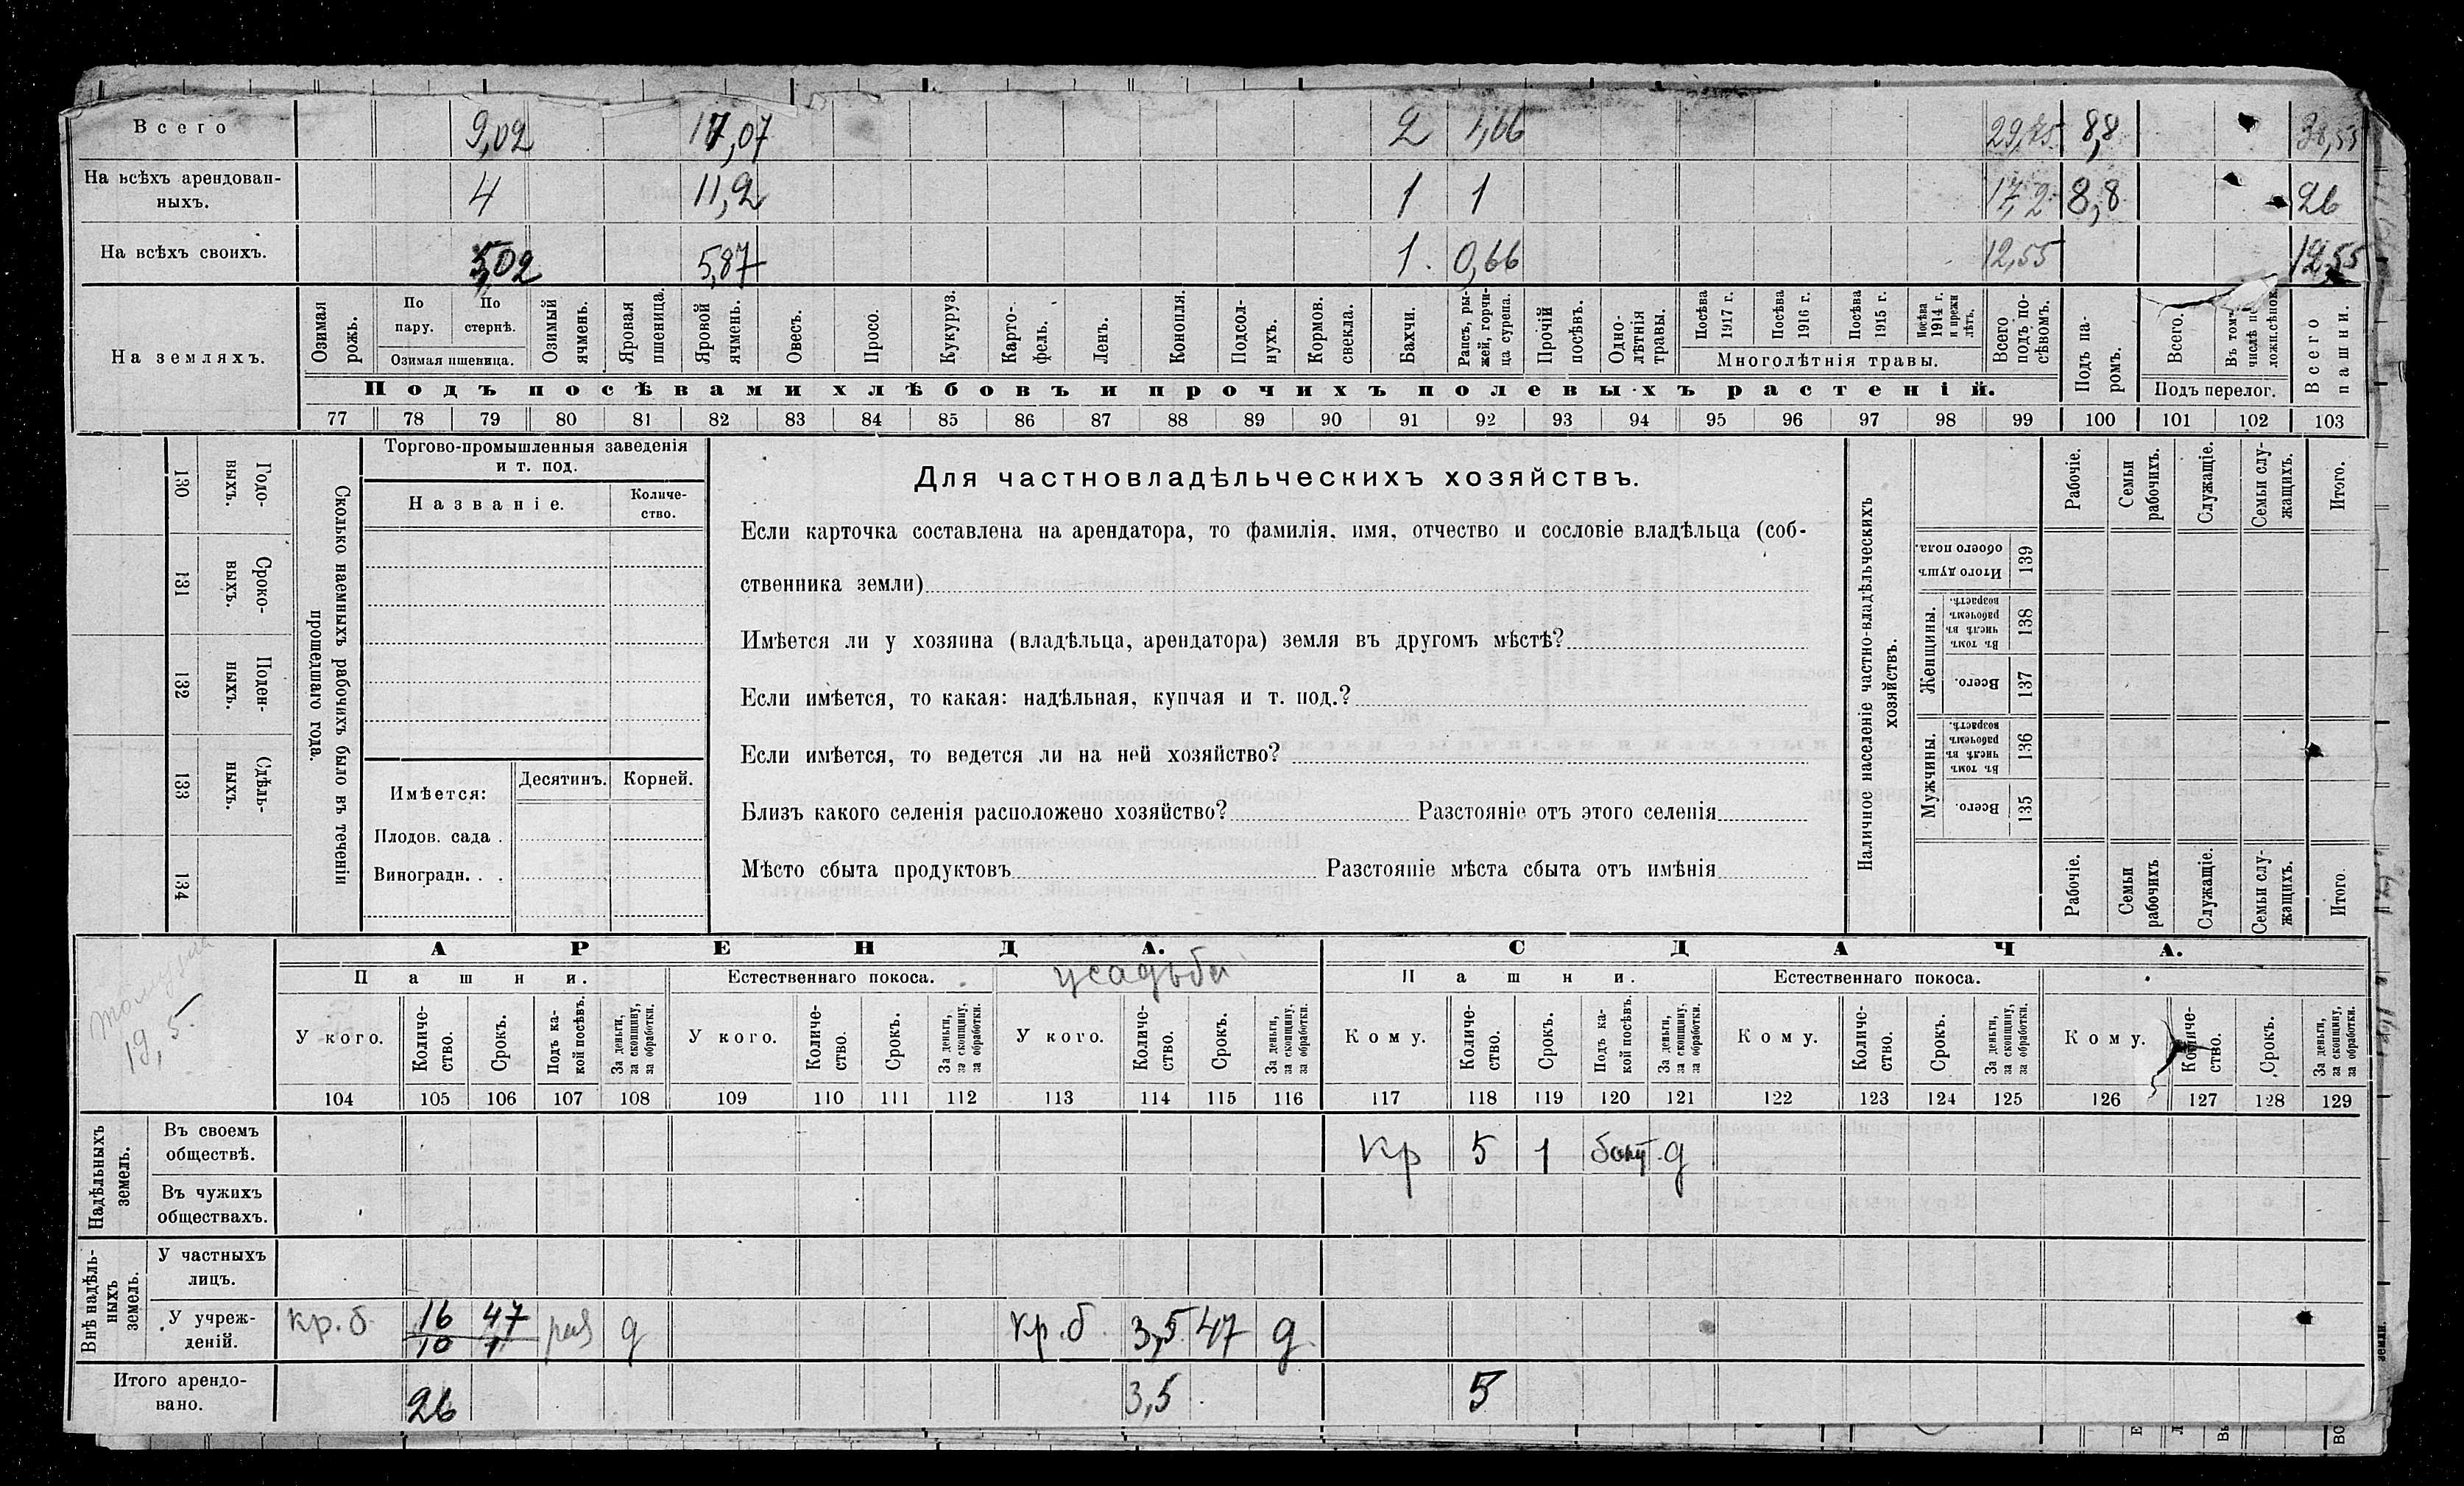 Всего 9,02 17,07 2 1,66 29,75 8,8 38,55
На всѣхъ арендован-
ныхъ. 4 11,2 1 1 17,2 8,8 26
На всѣхъ своихъ. 5,02 5,87 1 0,66 12,55 12,55
На земляхъ.
Озимая рожь.
По пару.
По стернѣ.
Озимая пшеница.
Озимый ячмень.
Яровая пшеница.
Яровой ячмень.
Овесъ.
Просо.
Кукуруз.
Карто-
фель.
Ленъ.
Конопля.
Подсол-
нухъ.
Кормов. свекла.
Бахчи.
Рапсъ, ры-
жей, горчи-
ца сурепа.
Прочій посѣвъ.
Одно-
лѣтнія травы.
Посѣва 1917 г.
Посѣва 1916 г.
Посѣва 1915 г.
Посѣва 1914 г. и прежн лѣтъ.
Многолѣтнія травы.
Всего подъ по-
сѣвомъ.
Подъ па-
ромъ.
Всего.
Подъ перелог.
Всего пашни.
Подъ посѣвами хлѣбовъ и прочихъ полевыхъ растеній.
77 78 79 80 81 82 83 84 85 86 87 88 89 90 91 92 93 94 95 96 97 98 99 100 101 102 103
130 Годо-
выхъ.
131 Сроко-
выхъ.
132 Поден-
ныхъ.
133 Сдѣль-
ныхъ.
134
Сколько наемныхъ рабочихъ было въ теченіи
прошедшаго года.
Торгово-промышленныя заведенія
и т. под.
Названіе.
Количе-
ство.
Имѣется: Десятинъ. Корней.
Плодов. сада .
Виноградн. . .
Для частновладѣльческихъ хозяйствъ.
Если карточка составлена на арендатора, то фамилія, имя, отчество и сословіе владѣльца (соб-
ственника земли)
Имѣется ли у хозяина (владѣльца, арендатора) земля въ другомъ мѣстѣ?
Если имѣется, то какая: надѣльная, купчая и т. под.?
Если имѣется, то ведется ли на ней хозяйство?
Близъ какого селенія расположено хозяйство? Разстояніе отъ этого селенія
Мѣсто сбыта продуктовъ Разстояніе мѣста сбыта отъ имѣнія
Наличное населеніе частно-владѣльческихъ
хозяйствъ.
Рабочіе.
Семьи рабочихъ.
Служащіе.
Семьи слу-
жащихъ.
Итого.
Итого душъ обоего пола. 139
Женщины.
Въ томъ числѣ въ рабочемъ возрастѣ. 138
Всего. 137
Мужчины.
Въ томъ числѣ въ рабочемъ возрастѣ. 136
Всего. 135
Рабочіе.
Семьи рабочихъ
Служащіе.
Семьи слу-
жащихъ.
Итого.
19,5.
АРЕНДА. СДАЧА.
Пашни. Естественнаго покоса. усадьба Пашни. Естественнаго покоса.
У кого. Количе-
ство. Срокъ. Подъ ка-
кой посѣвъ. За деньги, за скопщину, за обработки.
У кого. Количе-
ство. Срокъ. За деньги, за скопщину, за обработки.
У кого. Количе-
ство. Срокъ. За деньги, за скопщину, за обработки.
Кому. Количе-
ство. Срокъ. Подъ ка-
кой посѣвъ. За деньги, за скопщину, за обработки.
Кому. Количе-
ство. Срокъ. За деньги, за скопщину, за обработки.
Кому. Количе-
ство. Срокъ. За деньги, за скопщину, за обработки.
104 105 106 107 108 109 110 111 112 113 114 115 116 117 118 119 120 121 122 123 124 125 126 127 128 129
Надѣльныхъ земель.
Въ своемъ
обществѣ. Кр 5 1 д
Въ чужихъ
обществахъ.
Внѣ надѣль-
ныхъ земель.
У частныхъ
лицъ.
У учреж-
деній. кр. б. 16 47 раз д кр. б. 3,5 47 д
10 1
Итого арендо-
вано. 26 3,5 5